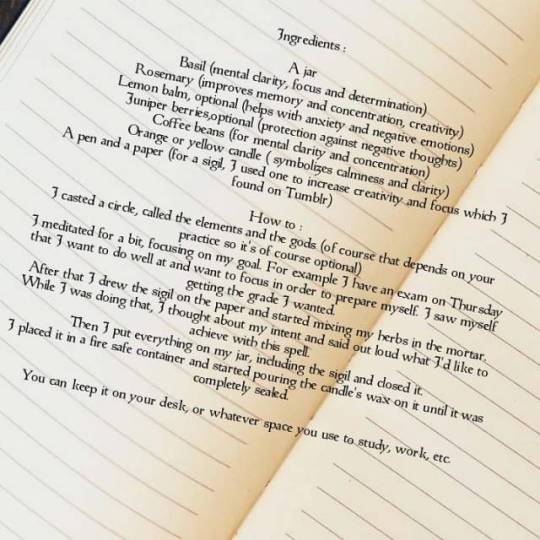 Ingredients :
A jar
Basil (mental clarity, focus and determination)
Rosemary (improves memory and concentration, creativity)
Lemon balm, optional (helps with anxiety and negative emotions)
Juniper berries,optional (protection against negative thoughts)
Coffee beans (for mental clarity and concentration)
Orange or yellow candle ( symbolizes calmness and clarity)
A pen and a paper (for a sigil, I used one to increase creativity and focus which I
found on Tumblr)
How to :
I casted a circle, called the elements and the gods (of course that depends on your
practice so it's of course optional)
I meditated for a bit, focusing on my goal. For example I have an exam on Thursday
that I want to do well at and want to focus in order to prepare myself. I saw myself
getting the grade I wanted.
After that I drew the sigil on the paper and started mixing my herbs in the mortar.
While I was doing that, I thought about my intent and said out loud what I'd like to
achieve with this spell.
Then I put everything on my jar, including the sigil and closed it.
I placed it in a fire safe container and started pouring the candle's wax on it until it was
completely sealed.
You can keep it on your desk, or whatever space you use to study, work, etc.